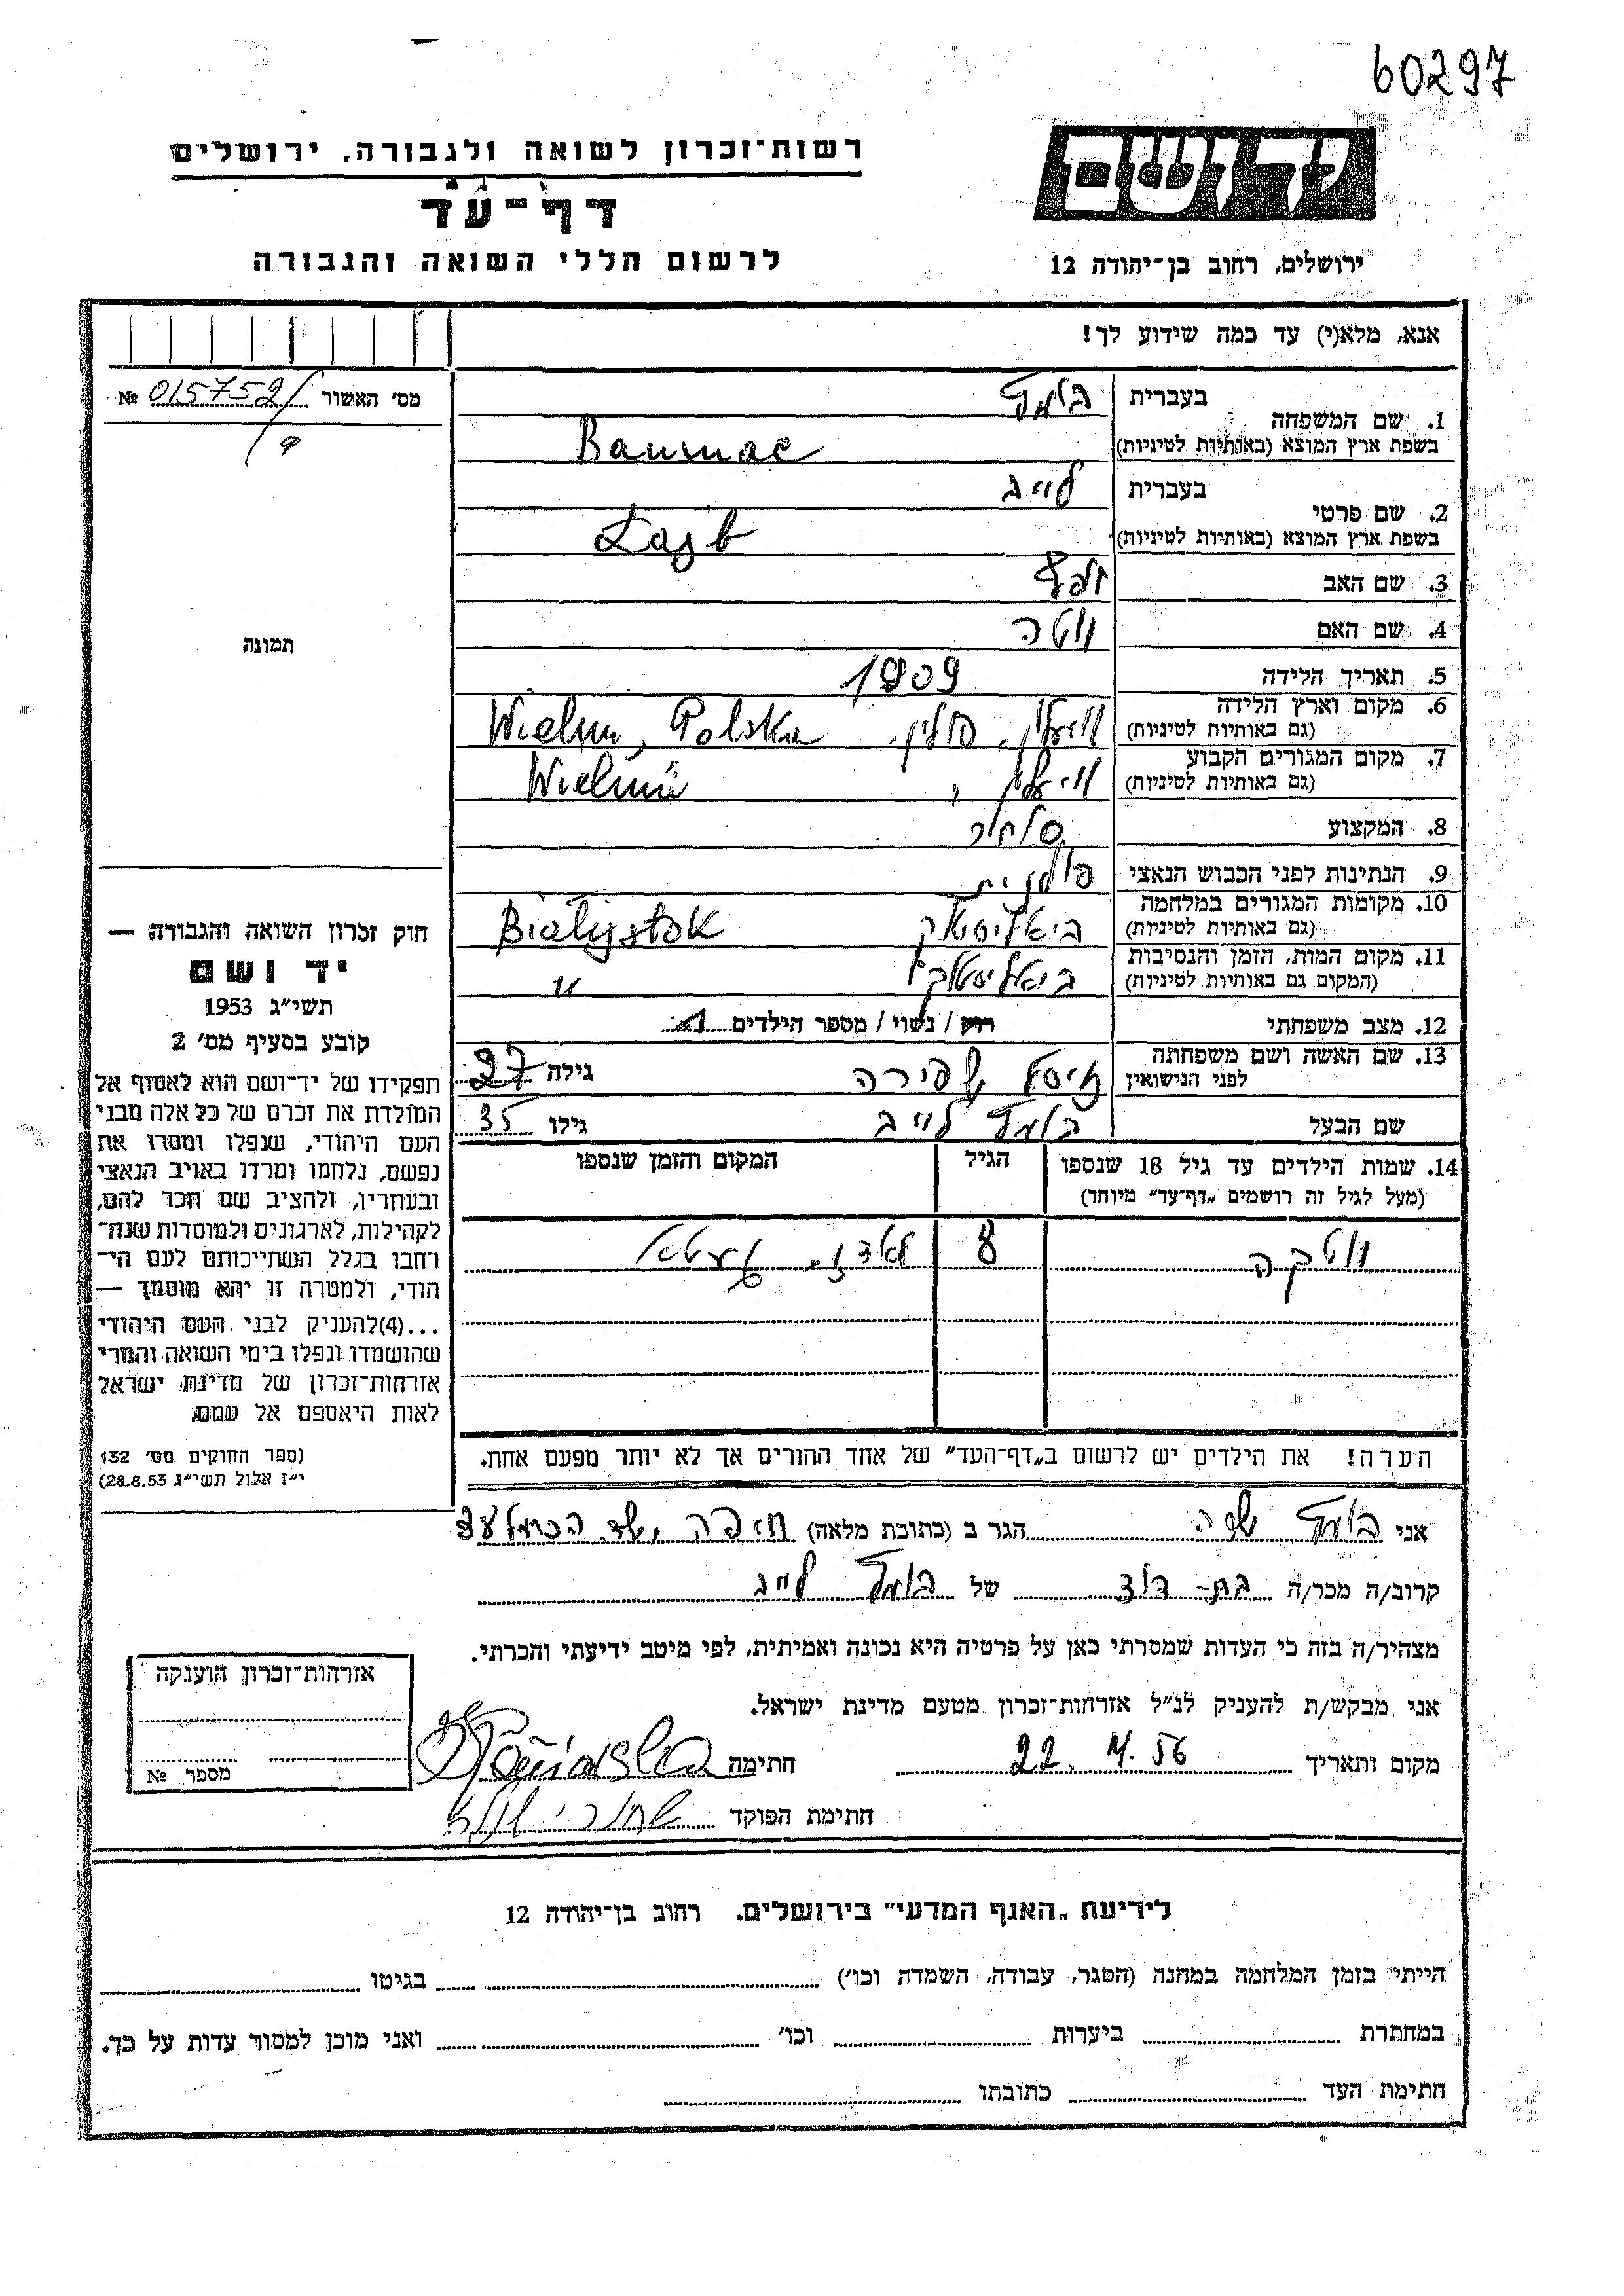 60297
רשות־זכרון לשואה ולגבורה, ירושלים
יד ושם
דף־עד
לרשום חללי השואה והגבורה
ירושלים, רחוב בן־יהודה 12
אנא, מלא(י) עד כמה שידוע לך!
מס׳ האשור № 015752/
1. שם המשפחה
בעברית
בשפת ארץ המוצא (באותיות לטיניות) Baumac
2. שם פרטי
בעברית לייב
בשפת ארץ המוצא (באותיות לטיניות) Lajb
3. שם האב
4. שם האם
5. תאריך הלידה 1909
6. מקום וארץ הלידה
(גם באותיות לטיניות) פולין, Polska
7. מקום המגורים הקבוע
(גם באותיות לטיניות)
8. המקצוע סוחר
9. הנתינות לפני הכבוש הנאצי פולנית
10. מקומות המגורים במלחמה
(גם באותיות לטיניות) ביאליסטוק Białystok
11. מקום המות, הזמן והנסיבות
(המקום גם באותיות לטיניות) ביאליסטוק "
12. מצב משפחתי רוק / נשוי / מספר הילדים 1
13. שם האשה ושם משפחתה
לפני הנישואין שפירה גילה 27
שם הבעל לייב גילו 35
14. שמות הילדים עד גיל 18 שנספו
(מעל לגיל זה רושמים „דף־עד״ מיוחד)
הגיל
המקום והזמן שנספו
הערה! את הילדים יש לרשום ב„דף־העד״ של אחד ההורים אך לא יותר מפעם אחת.
תמונה
חוק זכרון השואה והגבורה —
יד ושם
תשי״ג 1953
קובע בסעיף מס׳ 2
תפקידו של יד־ושם הוא לאסוף אל
המולדת את זכרם של כל אלה מבני
העם היהודי, שנפלו ומסרו את
נפשם, נלחמו ומרדו באויב הנאצי
ובעוזריו, ולהציב שם וזכר להם,
לקהילות, לארגונים ולמוסדות שנה־
רחבו בגלל השתייכותם לעם הי־
הודי, ולמטרה זו יהא מוסמך —
...(4) להעניק לבני העם היהודי
שהושמדו ונפלו בימי השואה והמרי
אזרחות־זכרון של מדינת ישראל
לאות היאספם אל עמם.
(ספר החוקים מס׳ 132
י״ז אלול תשי״ג 28.8.53)
אני הגר ב (כתובת מלאה) חיפה
קרוב/ה מכר/ה בת־דוד של לייב
מצהיר/ה בזה כי העדות שמסרתי כאן על פרטיה היא נכונה ואמיתית, לפי מיטב ידיעתי והכרתי.
אני מבקש/ת להעניק לנ״ל אזרחות־זכרון מטעם מדינת ישראל.
מקום ותאריך 56 חתימה
חתימת הפוקד
אזרחות־זכרון הוענקה
מספר №
לידיעת „האגף המדעי״ בירושלים, רחוב בן־יהודה 12
הייתי בזמן המלחמה במחנה (הסגר, עבודה, השמדה וכו׳) בגיטו
במחתרת ביערות וכו׳ ואני מוכן למסור עדות על כך.
חתימת העד כתובתו